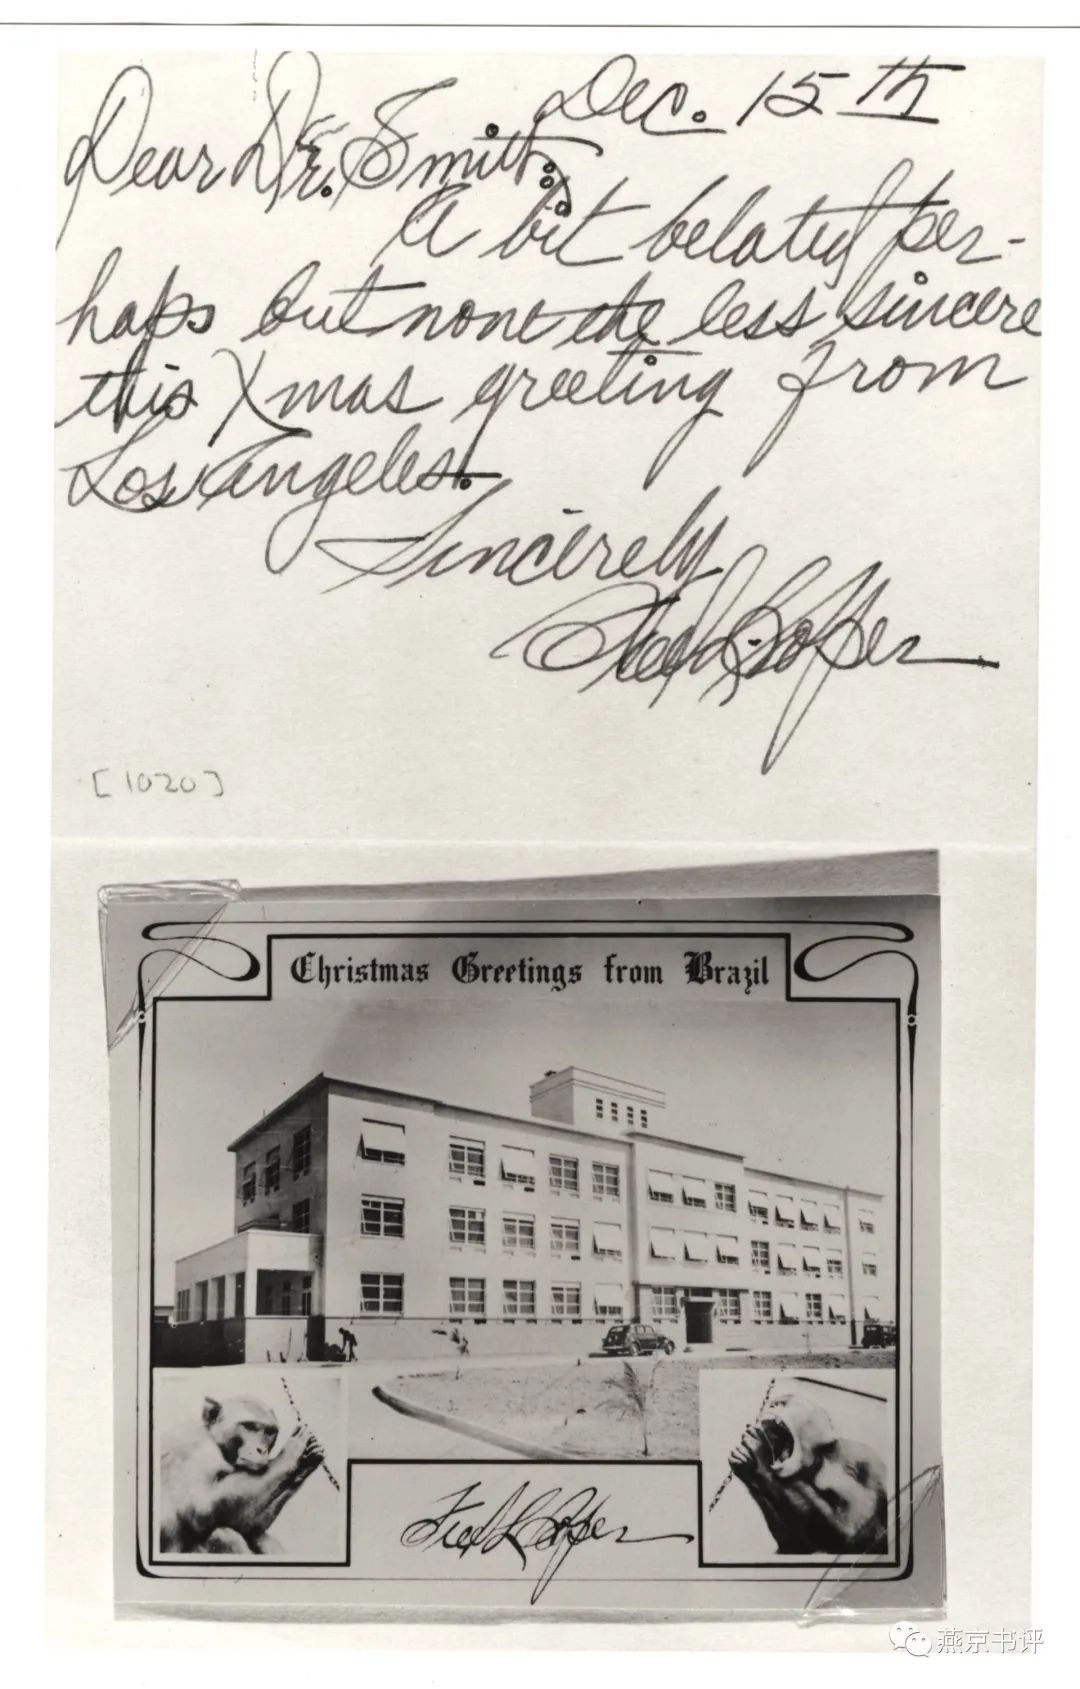 Dec. 15th
Dear Dr. Smith:
A bit belated per-
haps but none the less sincere
this Xmas greeting from
Los Angeles.
Sincerely
Fred L. Soper
[1020]
Christmas Greetings from Brazil
Fred L. Soper
燕京书评